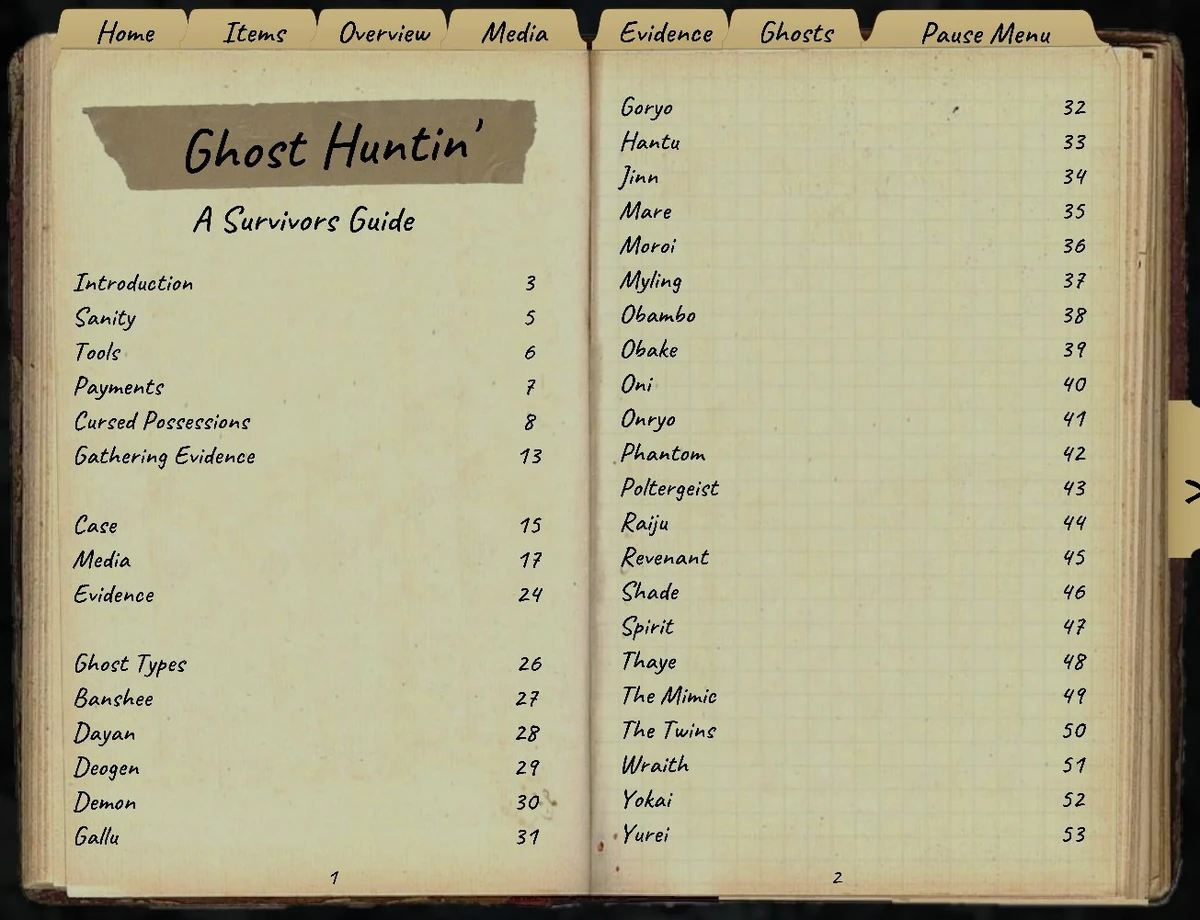 Home Items Overview Media Evidence Ghosts Pause Menu
Ghost Huntin'
A Survivors Guide
Introduction 3
Sanity 5
Tools 6
Payments 7
Cursed Possessions 8
Gathering Evidence 13
Case 15
Media 17
Evidence 24
Ghost Types 26
Banshee 27
Dayan 28
Deogen 29
Demon 30
Gallu 31
1
Goryo 32
Hantu 33
Jinn 34
Mare 35
Moroi 36
Myling 37
Obambo 38
Obake 39
Oni 40
Onryo 41
Phantom 42
Poltergeist 43
Raiju 44
Revenant 45
Shade 46
Spirit 47
Thaye 48
The Mimic 49
The Twins 50
Wraith 51
Yokai 52
Yurei 53
2
>